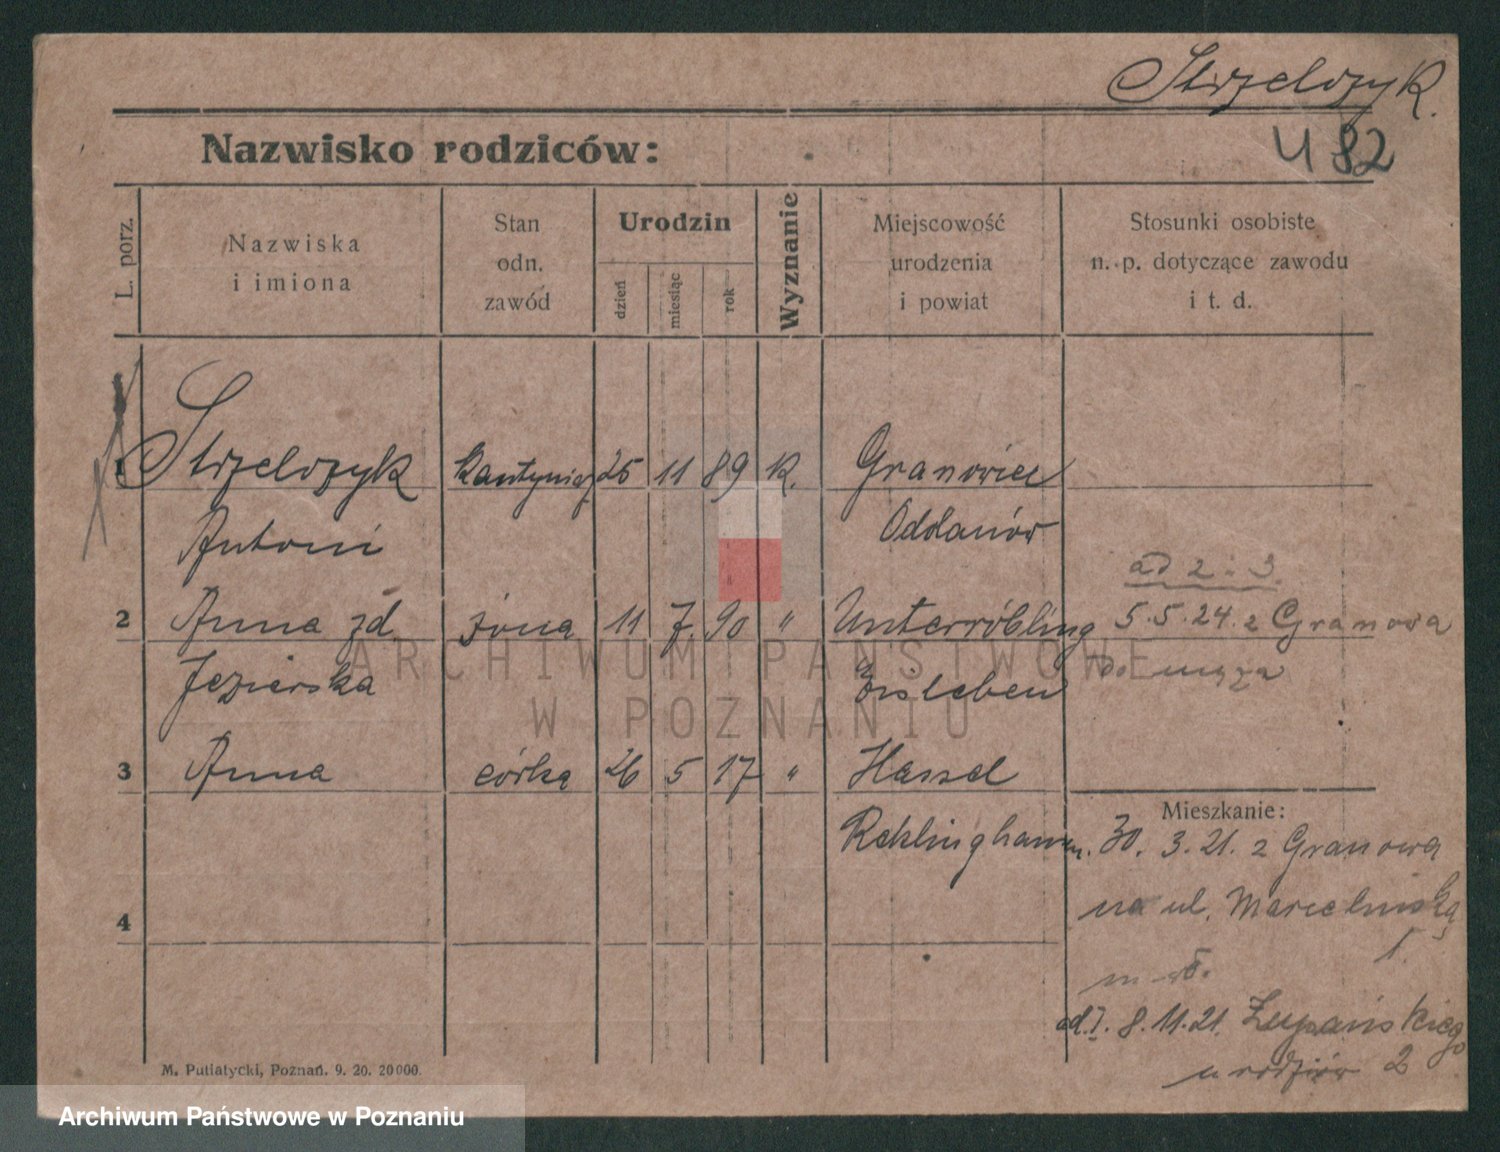 Strzelczyk.
Nazwisko rodziców:
482
L. porz.
Nazwiska
i imiona
Stan
odn.
zawód
Urodzin
dzień
miesiąc
rok
Wyznanie
Miejscowość
urodzenia
i powiat
Stosunki osobiste
n. p. dotyczące zawodu
i t. d.
1 Strzelczyk kantyniarz 25 11 89 K. Granowiec
Antoni Odolanów
ad 2 i 3.
2 Anna zd. żona 11 7. 90 " Unterröbling 5.5.24. z Granowa
Jezierska Eisleben do męża
3 Anna córka 26 5 17 " Hassel
Mieszkanie:
Reklinghausen. 30. 3. 21. z Granowa
na ul. Marcelińską
4
ad. I. 8. 11. 21. Żupańskiego
u rodziców 2
M. Putiatycki, Poznań. 9. 20. 20000.
ARCHIWUM PAŃSTWOWE
W POZNANIU
Archiwum Państwowe w Poznaniu